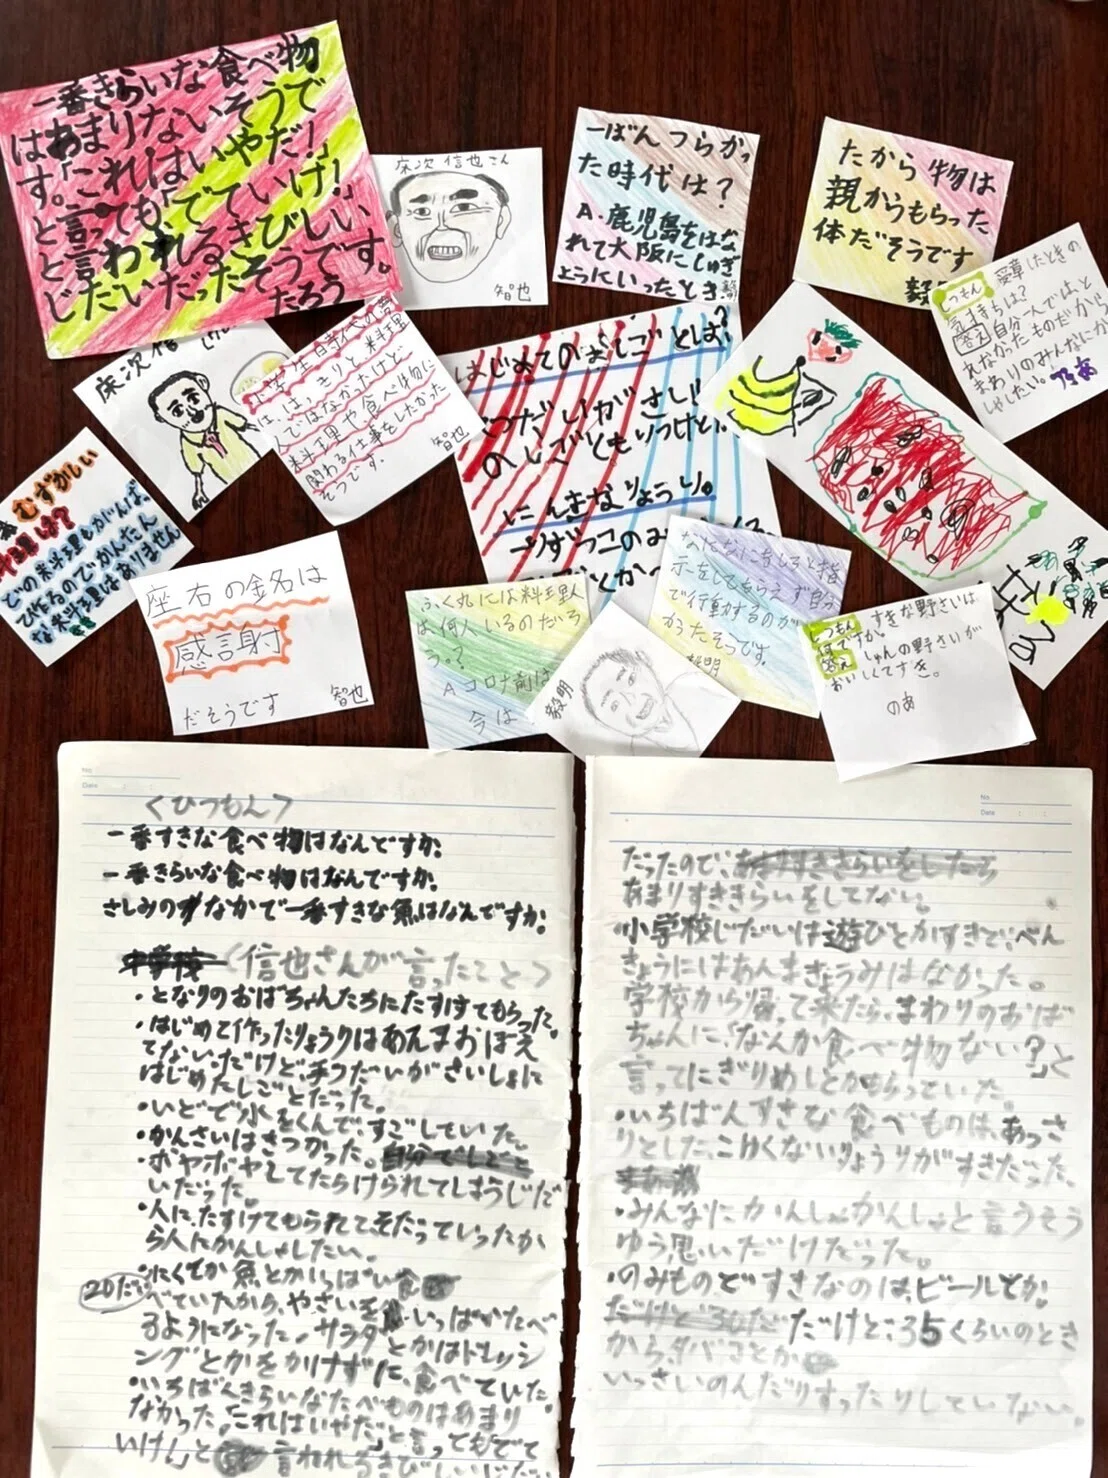 一番きらいな食べ物
はあまりないそうで
す。「これはいやだ！」
と言っても「でていけ！」
と言われるきびしい
じだいだったそうです。
たろう
床次信也さん
智也
一ばんつらかっ
た時代は？
A.鹿児島をはな
れて大阪にしゅぎ
ょうにいったとき
たから物は
親からもらった
体だそうです
しつもん 受章したときの
気持ちは？
答え 自分一人では、と
えなかったものだから
まわりのみんなにか
しゃしたい。 乃あ
床次信
小学生時代の夢
は、はっきりと料理
人ではなかったけど
料理や食べ物に
関わる仕事をしたかった
そうです。
智也
はじめてのしごとは？
つだいがさいし
のしごと
にんきなりょうり。
むずかしい
料理は？
どの料理もがんば
て作るのでかんたん
な料理はありません
座右の銘は
感謝
だそうです
智也
ふく丸には料理人
は何人いるのだろ
う。？
A コロナ前は
今は
なになにをしろと指
示をしてもらえず自分
で行動するのが
かったそうです。
毅明
毅明
しつもん すきな野さいは
何ですか。
答え しゅんの野さいが
おいしくてすき。
のあ
<しつもん>
一番すきな食べ物はなんですか。
一番きらいな食べ物はなんですか。
さしみのすなかで一番すきな魚はなんですか。
<信也さんが言ったこと>
・となりのおばちゃんたちにたすけてもらった。
・はじめて作ったりょうりはあんまおぼえ
てない。だけど、手つだいがさいしょに
はじめたしごとだった。
・いどで水をくんで、すごしていた。
・かんさいはきつかった。
・ボヤボヤしてたらけられてしまうじだ
いだった。
・人に、たすけてもられて、そだっていったか
ら人にかんしゃしたい。
20だい
・にくとか魚とかいっぱい食
べていたから、やさいを、いっぱかたべ
るようになった。サラダとかはドレッシ
ングとかをかけずに、食べていた。
・いちばんきらいなたべものはあまり
なかった。「これはいやだ」と言っても「でて
いけ」と言われるきびしいじだい
だったので、
あまりすききらいをしてない。
・小学校じだいは遊びとかすきで、べん
きょうにはあんまきょうみはなかった。
学校から帰って来たら、まわりのおば
ちゃんに、「なんか食べ物ない？」と
言ってにぎりめしとかもらっていた。
・いちばんすきな食べものは、あっさ
りとした、こゆくないりょうりがすきだった。
・みんなにかんしゃかんしゃと言うそう
ゆう思いだけだった。
・のみものどすきなのは、ビールとか。
だけど、35くらいのとき
から、タバコとか
いっさいのんだりすったりしていない。